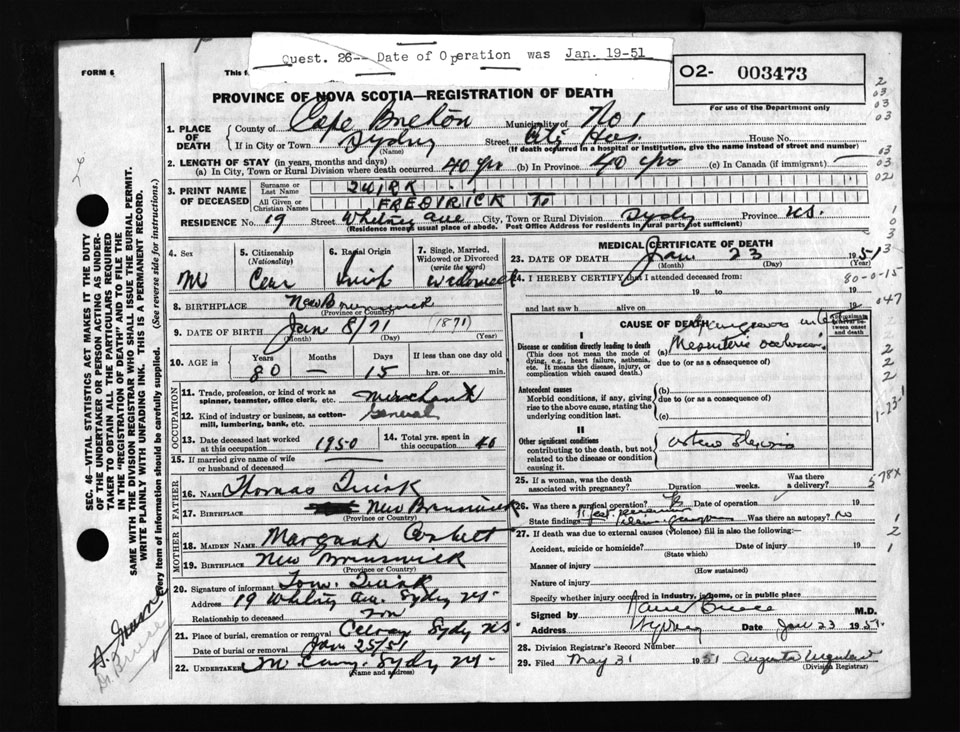 Quest. 26-- Date of Operation was Jan. 19-51
FORM 6
This f
02- 003473
PROVINCE OF NOVA SCOTIA—REGISTRATION OF DEATH
For use of the Department only
1. PLACE OF DEATH
County of Cape Breton Municipality of No 1
If in City or Town Sydney Street City Hos. House No.
(Name) (If death occurred in a hospital or institution, give name instead of street and number)
2. LENGTH OF STAY (in years, months and days)
(a) In City, Town or Rural Division where death occurred 40 yrs (b) In Province 40 yrs (c) In Canada (if immigrant)
3. PRINT NAME OF DECEASED
Surname or Last Name QUIRK
All Given or Christian Names FREDIRICK To
RESIDENCE No. 19 Street Whitney Ave City, Town or Rural Division Sydney Province N.S.
(Residence means usual place of abode. Post Office Address for residents in rural parts not sufficient)
4. Sex M
5. Citizenship (Nationality) Can
6. Racial Origin Irish
7. Single, Married, Widowed or Divorced (write the word) Widowed
8. BIRTHPLACE New Brunswick
(Province or Country)
9. DATE OF BIRTH Jan 8/71 (1871)
(Month) (Day) (Year)
10. AGE is Years 80 Months — Days 15 If less than one day old hrs. or min.
OCCUPATION
11. Trade, profession, or kind of work as spinner, teamster, office clerk, etc. Merchant
12. Kind of industry or business, as cotton-mill, lumbering, bank, etc. General
13. Date deceased last worked at this occupation 1950
14. Total yrs. spent in this occupation 40
15. If married give name of wife or husband of deceased
FATHER
16. NAME Thomas Quirk
17. BIRTHPLACE New Brunswick
(Province or Country)
MOTHER
18. MAIDEN NAME Margaret Corbett
19. BIRTHPLACE New Brunswick
(Province or Country)
20. Signature of informant Tom. Quirk
Address 19 Whitney Ave. Sydney NS.
Relationship to deceased son
21. Place of burial, cremation or removal Sydney NS
Date of burial or removal Jan 25/51
22. UNDERTAKER Sydney NS.
(Name and address)
MEDICAL CERTIFICATE OF DEATH
23. DATE OF DEATH Jan 23 1951
(Month) (Day) (Year)
24. I HEREBY CERTIFY that I attended deceased from:
19 to 19
and last saw h alive on 19
80-0-15
CAUSE OF DEATH
Approximate interval between onset and death
I
Disease or condition directly leading to death
(This does not mean the mode of dying, e.g., heart failure, asthenia, etc. It means the disease, injury, or complication which caused death.)
(a) Mesenteric occlusion
due to (or as a consequence of)
Antecedent causes
Morbid conditions, if any, giving rise to the above cause, stating the underlying condition last.
(b)
due to (or as a consequence of)
(c)
II
Other significant conditions contributing to the death, but not related to the disease or condition causing it.
25. If a woman, was the death associated with pregnancy? Duration weeks. Was there a delivery?
26. Was there a surgical operation? Yes Date of operation 19
State findings Was there an autopsy? No
27. If death was due to external causes (violence) fill in also the following:—
Accident, suicide or homicide? Date of injury 19
(State which)
Manner of injury
(How sustained)
Nature of injury
Specify whether injury occurred in industry, in home, or in public place
Signed by M.D.
Address Sydney Date Jan 23 1951
28. Division Registrar's Record Number
29. Filed May 31 1951
(Division Registrar)
SEC. 46—VITAL STATISTICS ACT MAKES IT THE DUTY OF THE UNDERTAKER OR PERSON ACTING AS UNDERTAKER TO OBTAIN ALL THE PARTICULARS REQUIRED IN THE "REGISTRATION OF DEATH" AND TO FILE THE SAME WITH THE DIVISION REGISTRAR WHO SHALL ISSUE THE BURIAL PERMIT.
WRITE PLAINLY WITH UNFADING INK. THIS IS A PERMANENT RECORD.
Every item of information should be carefully supplied. (See reverse side for instructions.)